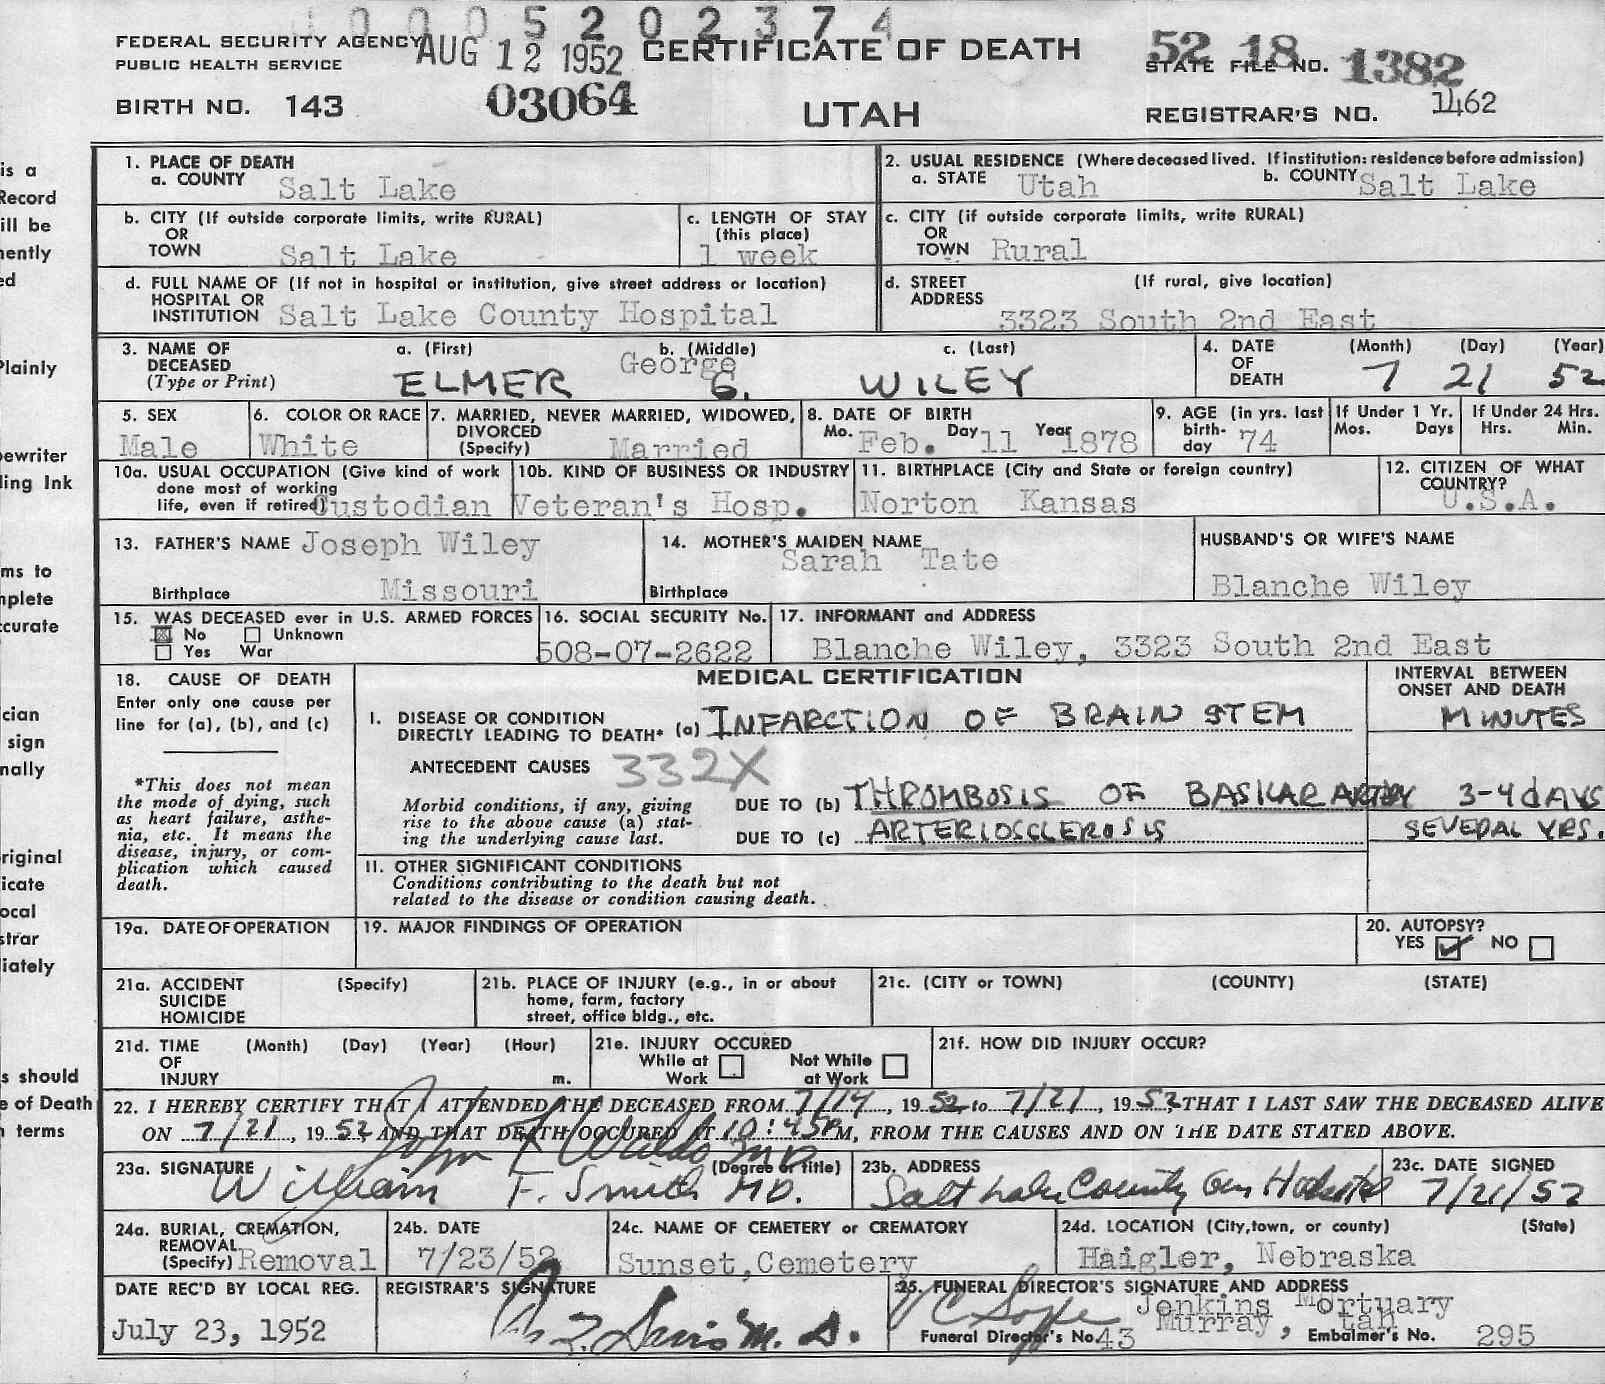 10005202374
FEDERAL SECURITY AGENCY AUG 12 1952 CERTIFICATE OF DEATH 52 18
PUBLIC HEALTH SERVICE STATE FILE NO. 1382
BIRTH NO. 143 03064 UTAH REGISTRAR'S NO. 1462
is a
Record
ill be
nently
ed
Plainly
ewriter
ling Ink
ms to
nplete
ccurate
cian
sign
nally
riginal
icate
ocal
strar
iately
s should
e of Death
n terms
1. PLACE OF DEATH
a. COUNTY Salt Lake
2. USUAL RESIDENCE (Where deceased lived. If institution: residence before admission)
a. STATE Utah b. COUNTY Salt Lake
b. CITY (If outside corporate limits, write RURAL)
OR
TOWN Salt Lake
c. LENGTH OF STAY
(this place)
1 week
c. CITY (if outside corporate limits, write RURAL)
OR
TOWN Rural
d. FULL NAME OF (If not in hospital or institution, give street address or location)
HOSPITAL OR
INSTITUTION Salt Lake County Hospital
d. STREET (If rural, give location)
ADDRESS
3323 South 2nd East
3. NAME OF a. (First) b. (Middle) c. (Last)
DECEASED George
(Type or Print) ELMER G. WILEY
4. DATE (Month) (Day) (Year)
OF
DEATH 7 21 52
5. SEX
Male
6. COLOR OR RACE
White
7. MARRIED, NEVER MARRIED, WIDOWED,
DIVORCED
(Specify) Married
8. DATE OF BIRTH
Mo. Feb. Day 11 Year 1878
9. AGE (in yrs. last
birth-
day 74
If Under 1 Yr.
Mos. Days
If Under 24 Hrs.
Hrs. Min.
10a. USUAL OCCUPATION (Give kind of work
done most of working
life, even if retired) Custodian
10b. KIND OF BUSINESS OR INDUSTRY
Veteran's Hosp.
11. BIRTHPLACE (City and State or foreign country)
Norton Kansas
12. CITIZEN OF WHAT
COUNTRY?
U.S.A.
13. FATHER'S NAME Joseph Wiley
Birthplace Missouri
14. MOTHER'S MAIDEN NAME
Sarah Tate
Birthplace
HUSBAND'S OR WIFE'S NAME
Blanche Wiley
15. WAS DECEASED ever in U.S. ARMED FORCES
No Unknown
Yes War
16. SOCIAL SECURITY No.
508-07-2622
17. INFORMANT and ADDRESS
Blanche Wiley, 3323 South 2nd East
18. CAUSE OF DEATH
Enter only one cause per
line for (a), (b), and (c)
*This does not mean
the mode of dying, such
as heart failure, asthe-
nia, etc. It means the
disease, injury, or com-
plication which caused
death.
MEDICAL CERTIFICATION
INTERVAL BETWEEN
ONSET AND DEATH
I. DISEASE OR CONDITION
DIRECTLY LEADING TO DEATH* (a) INFARCTION OF BRAIN STEM MINUTES
ANTECEDENT CAUSES 332X
Morbid conditions, if any, giving
rise to the above cause (a) stat-
ing the underlying cause last.
DUE TO (b) THROMBOSIS OF BASILAR ARTERY 3-4 DAYS
DUE TO (c) ARTERIOSCLEROSIS SEVERAL YRS.
II. OTHER SIGNIFICANT CONDITIONS
Conditions contributing to the death but not
related to the disease or condition causing death.
19a. DATE OF OPERATION
19. MAJOR FINDINGS OF OPERATION
20. AUTOPSY?
YES NO
21a. ACCIDENT (Specify)
SUICIDE
HOMICIDE
21b. PLACE OF INJURY (e.g., in or about
home, farm, factory
street, office bldg., etc.
21c. (CITY or TOWN) (COUNTY) (STATE)
21d. TIME (Month) (Day) (Year) (Hour)
OF
INJURY m.
21e. INJURY OCCURED
While at Not While
Work at Work
21f. HOW DID INJURY OCCUR?
22. I HEREBY CERTIFY THAT I ATTENDED THE DECEASED FROM 7/14, 1952 to 7/21, 1952, THAT I LAST SAW THE DECEASED ALIVE
ON 7/21, 1952 AND THAT DEATH OCCURED AT 10:45 P M, FROM THE CAUSES AND ON THE DATE STATED ABOVE.
23a. SIGNATURE (Degree or title)
William F. Smith MD.
23b. ADDRESS
Salt Lake County Gen Hospital
23c. DATE SIGNED
7/21/52
24a. BURIAL, CREMATION,
REMOVAL
(Specify) Removal
24b. DATE
7/23/52
24c. NAME OF CEMETERY or CREMATORY
Sunset, Cemetery
24d. LOCATION (City, town, or county) (State)
Haigler, Nebraska
DATE REC'D BY LOCAL REG.
July 23, 1952
REGISTRAR'S SIGNATURE
M. D.
25. FUNERAL DIRECTOR'S SIGNATURE AND ADDRESS
Jenkins Mortuary
Murray, Utah
Funeral Director's No. 43 Embalmer's No. 295